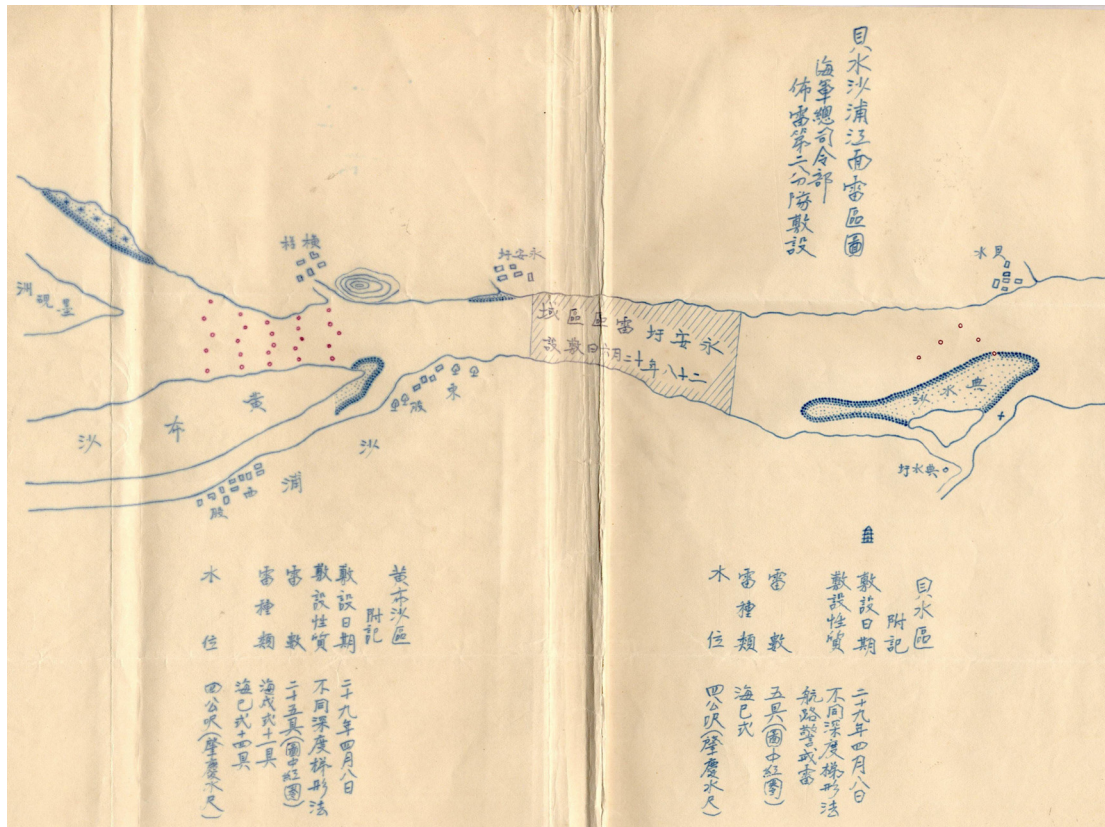 貝水沙浦江面雷區圖
海軍總司令部
佈雷第二八分隊敷設
貝水
永安圩
橫槎
墨硯洲
永安圩雷區區域
二十八年十二月六日敷設
典水沙
典水圩
東段
黃布沙
沙浦
西段
貝水區
附記
敷設日期 二十九年四月八日
敷設性質 不同深度梯形法
航路警戒雷
雷數 五具(圖中紅圈)
雷種類 海巳式
水位 四公呎(肇慶水尺)
黃布沙區
附記
敷設日期 二十九年四月八日
敷設性質 不同深度梯形法
雷數 二十五具(圖中紅圈)
雷種類 海戊式十一具
海巳式十四具
水位 四公呎(肇慶水尺)